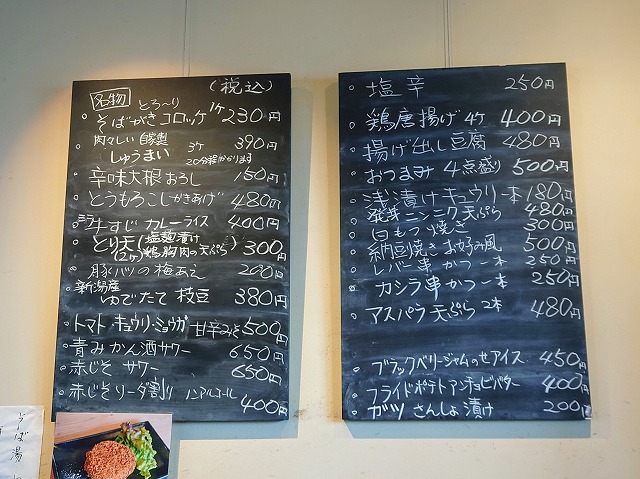 (税込)
名物 とろ〜り
そばがきコロッケ 1ケ 230円
肉々しい 自家製
しゅうまい 3ケ 390円
20分程かかります
辛味大根おろし 150円
とうもろこしかきあげ 480円
ミニ牛すじカレーライス 400円
とり天(塩麹漬け
(2ケ)鶏胸肉の天ぷら) 300円
豚ハツの梅あえ 200円
新潟産
ゆでたて 枝豆 380円
トマト・キュウリ・ミョウガ 甘辛みそ 500円
青みかん酒サワー 650円
赤じそ サワー 650円
赤じそソーダ割り ノンアルコール 400円
塩辛 250円
鶏唐揚げ 4ケ 400円
揚げ出し豆腐 480円
おつまみ 4点盛り 500円
浅漬けキュウリ一本 180円
発芽ニンニク天ぷら 480円
白もつ焼き 300円
納豆焼きお好み風 500円
レバー串かつ一本 250円
カシラ串かつ一本 250円
アスパラ天ぷら 2本 480円
ブラックベリージャムのせアイス 450円
フライドポテトアンチョビバター 400円
ガツ さんしょ漬け 200円
そば湯